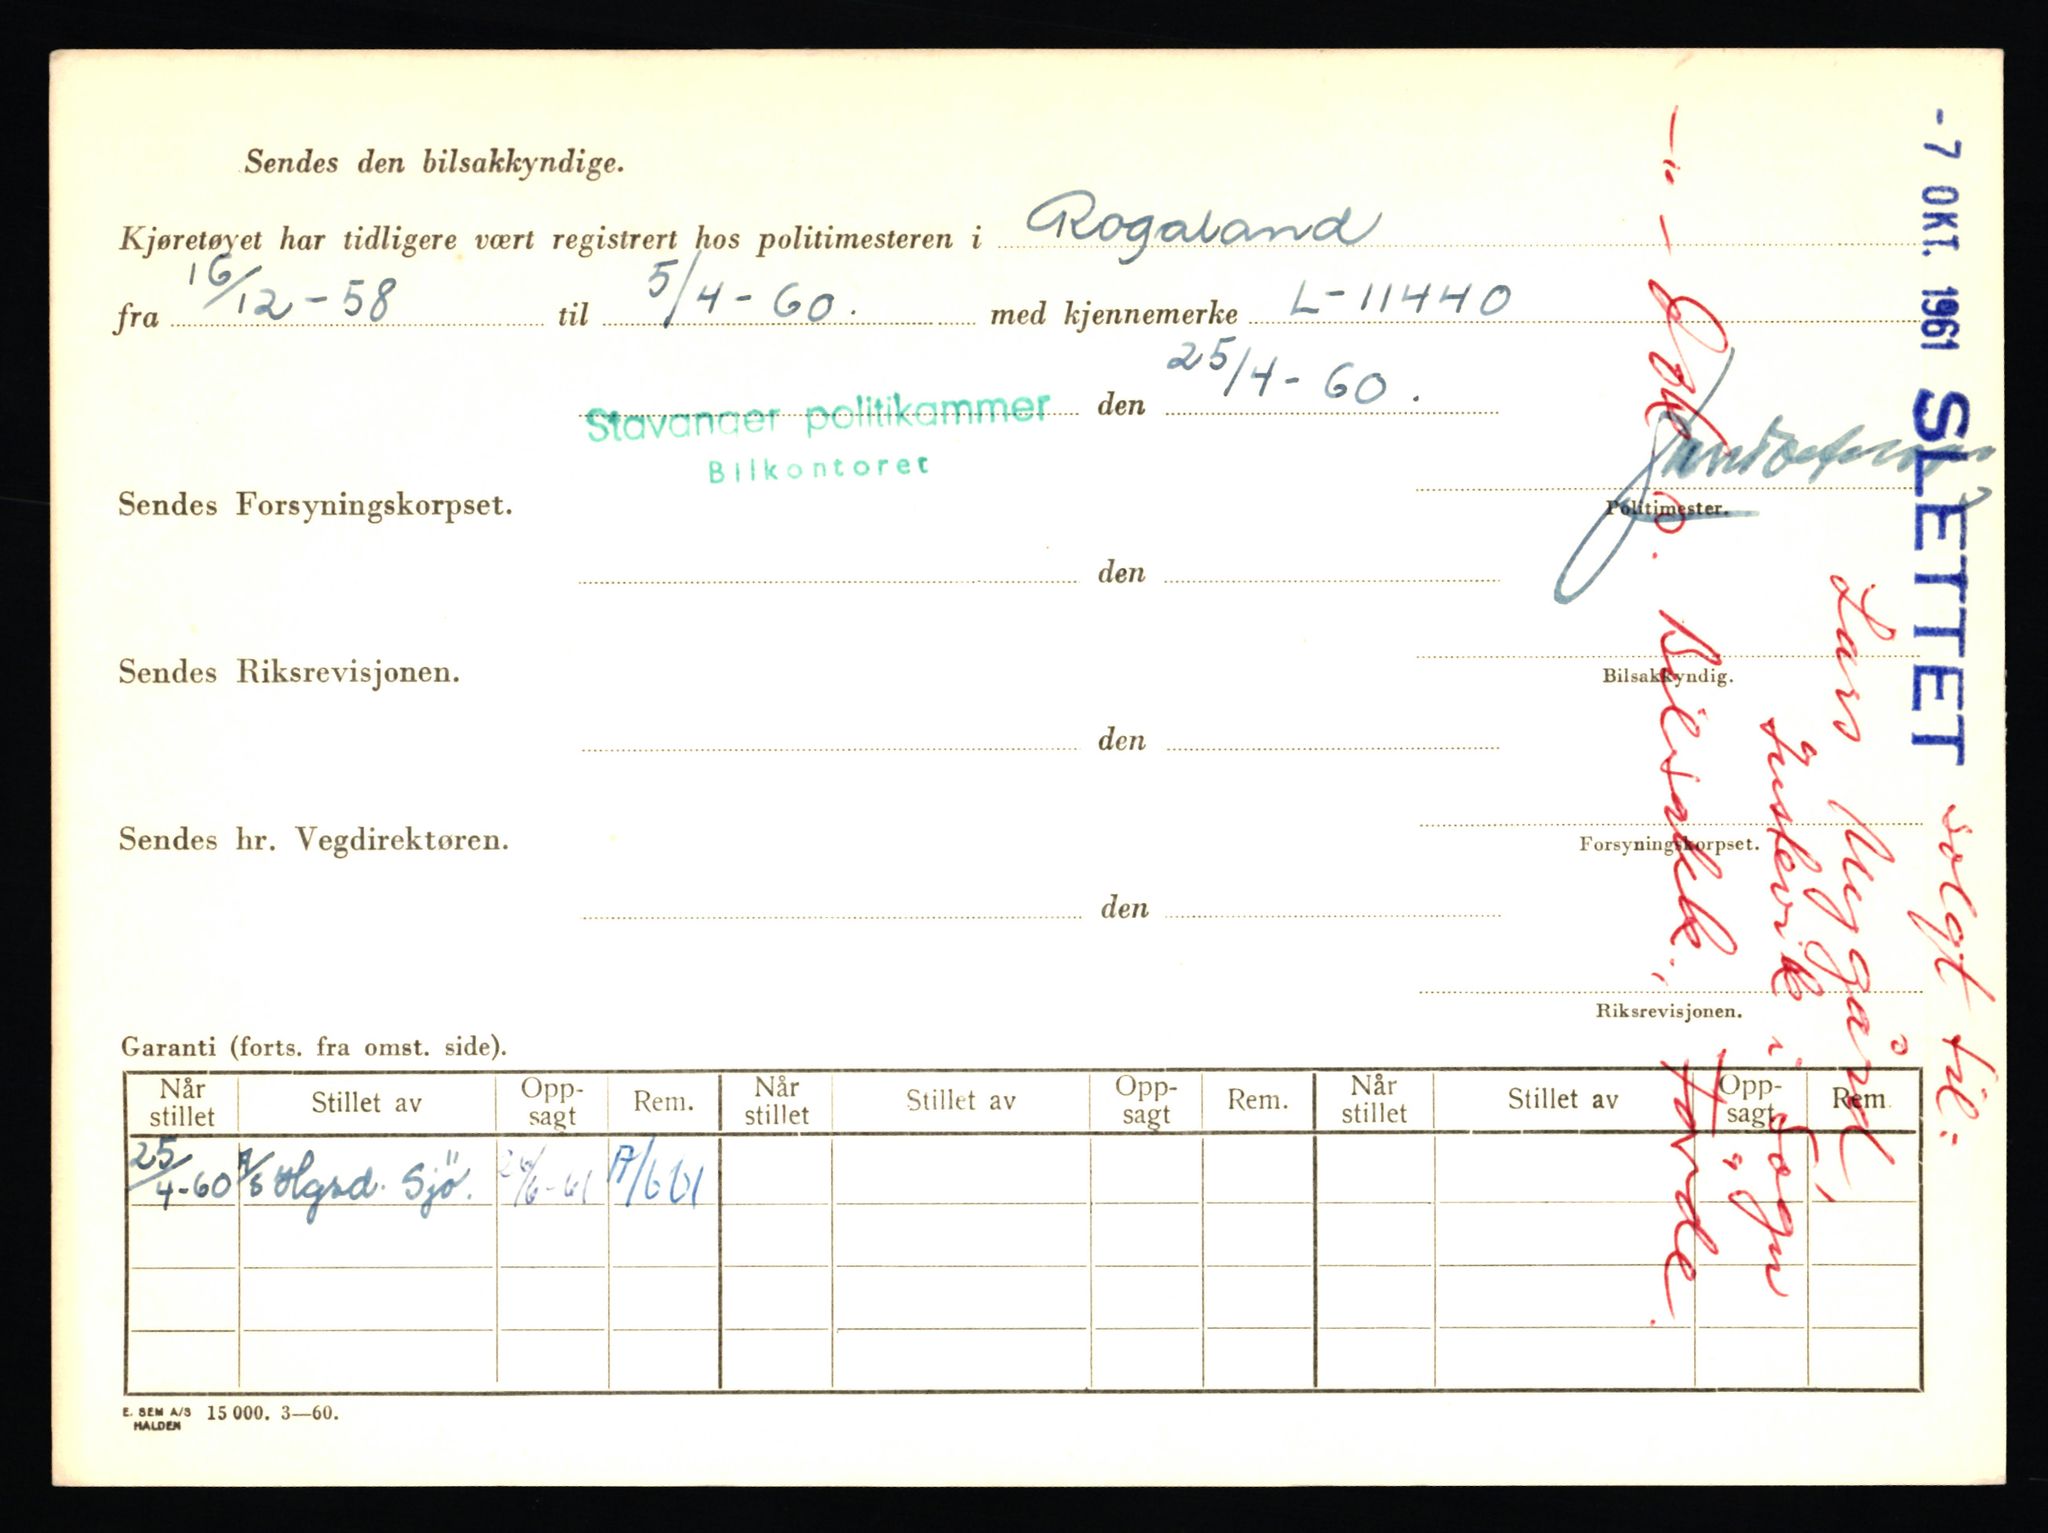 Sendes den bilsakkyndige.
Kjøretøyet har tidligere vært registrert hos politimesteren i Rogaland
fra 16/12-58 til 5/4-60. med kjennemerke L-11440
Stavanger politikammer den 25/4-60.
Bilkontoret
Sendes Forsyningskorpset.
Politimester.
den
Sendes Riksrevisjonen.
Bilsakkyndig.
den
Sendes hr. Vegdirektøren.
Forsyningskorpset.
den
Riksrevisjonen.
Garanti (forts. fra omst. side).
Når stillet Stillet av Opp-sagt Rem. Når stillet Stillet av Opp-sagt Rem. Når stillet Stillet av Opp-sagt Rem.
25/4-60 A/S Hgsd. Sjö. 26/6-61
E. SEM A/S HALDEN 15 000. 3—60.
- 7 OKT. 1961 SLETTET solgt til:
Lars Nygård,
i Sogn
Bilsakk., Førde.